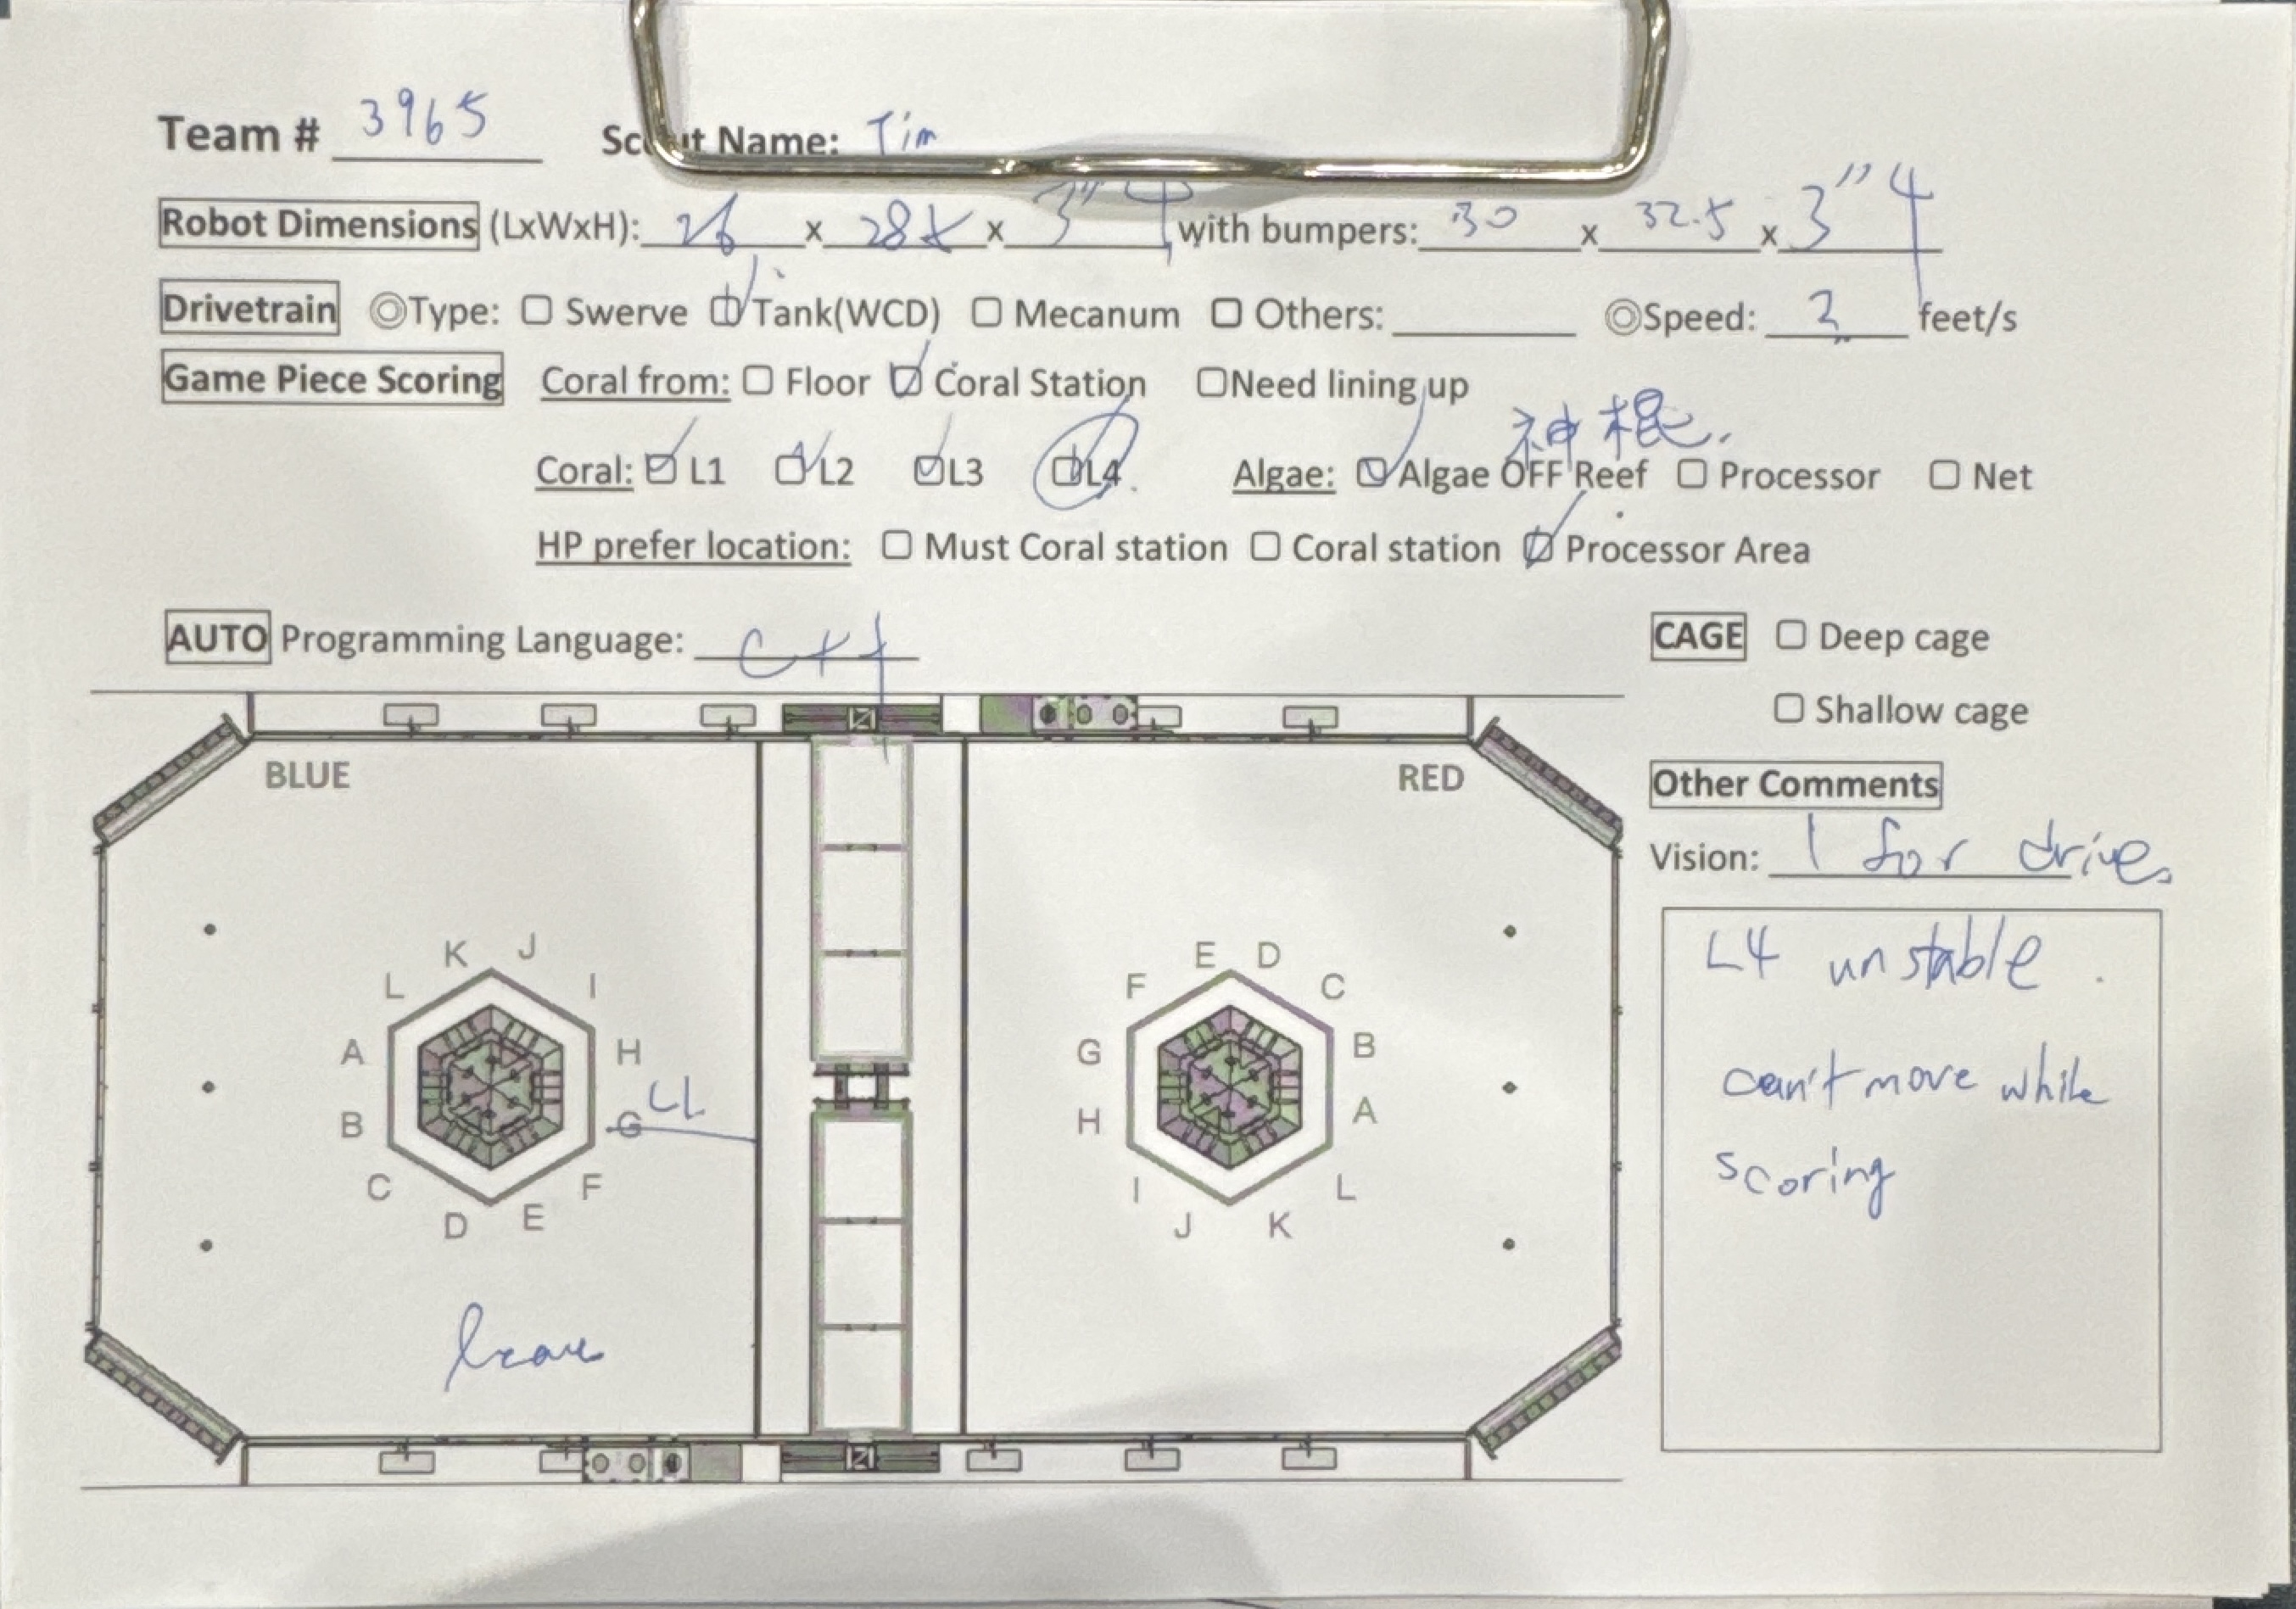 Team # 3965 Scout Name: Tim
Robot Dimensions (LxWxH): 26 x 28 x 3" 4 with bumpers: 30 x 32.5 x 3" 4
Drivetrain ◎Type: ☐ Swerve ☑ Tank(WCD) ☐ Mecanum ☐ Others: ◎Speed: 2 feet/s
Game Piece Scoring Coral from: ☐ Floor ☑ Coral Station ☐Need lining up
神棍.
Coral: ☑ L1 ☑ L2 ☑ L3 ☑ L4 Algae: ☑ Algae OFF Reef ☐ Processor ☐ Net
HP prefer location: ☐ Must Coral station ☐ Coral station ☑ Processor Area
AUTO Programming Language: C++
CAGE ☐ Deep cage
☐ Shallow cage
BLUE
RED
K J
L I
A H
B G
C F
D E
leave
E D
F C
G B
H A
I L
J K
Other Comments
Vision: 1 for drive.
L4 unstable.
can't move while
scoring